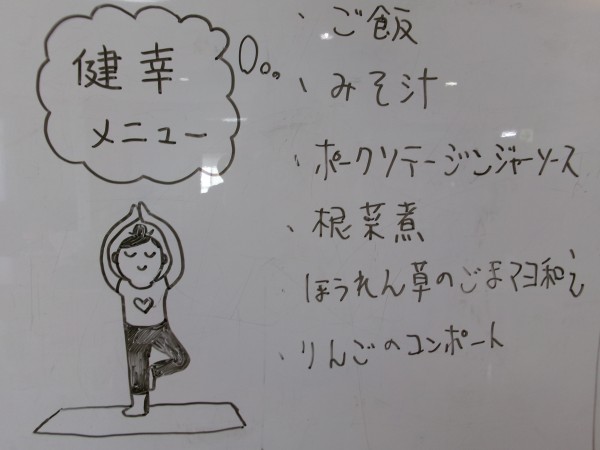 健幸
メニュー
、ご飯
、みそ汁
、ポークソテージンジャーソース
、根菜煮
、ほうれん草のごまマヨ和え
、りんごのコンポート